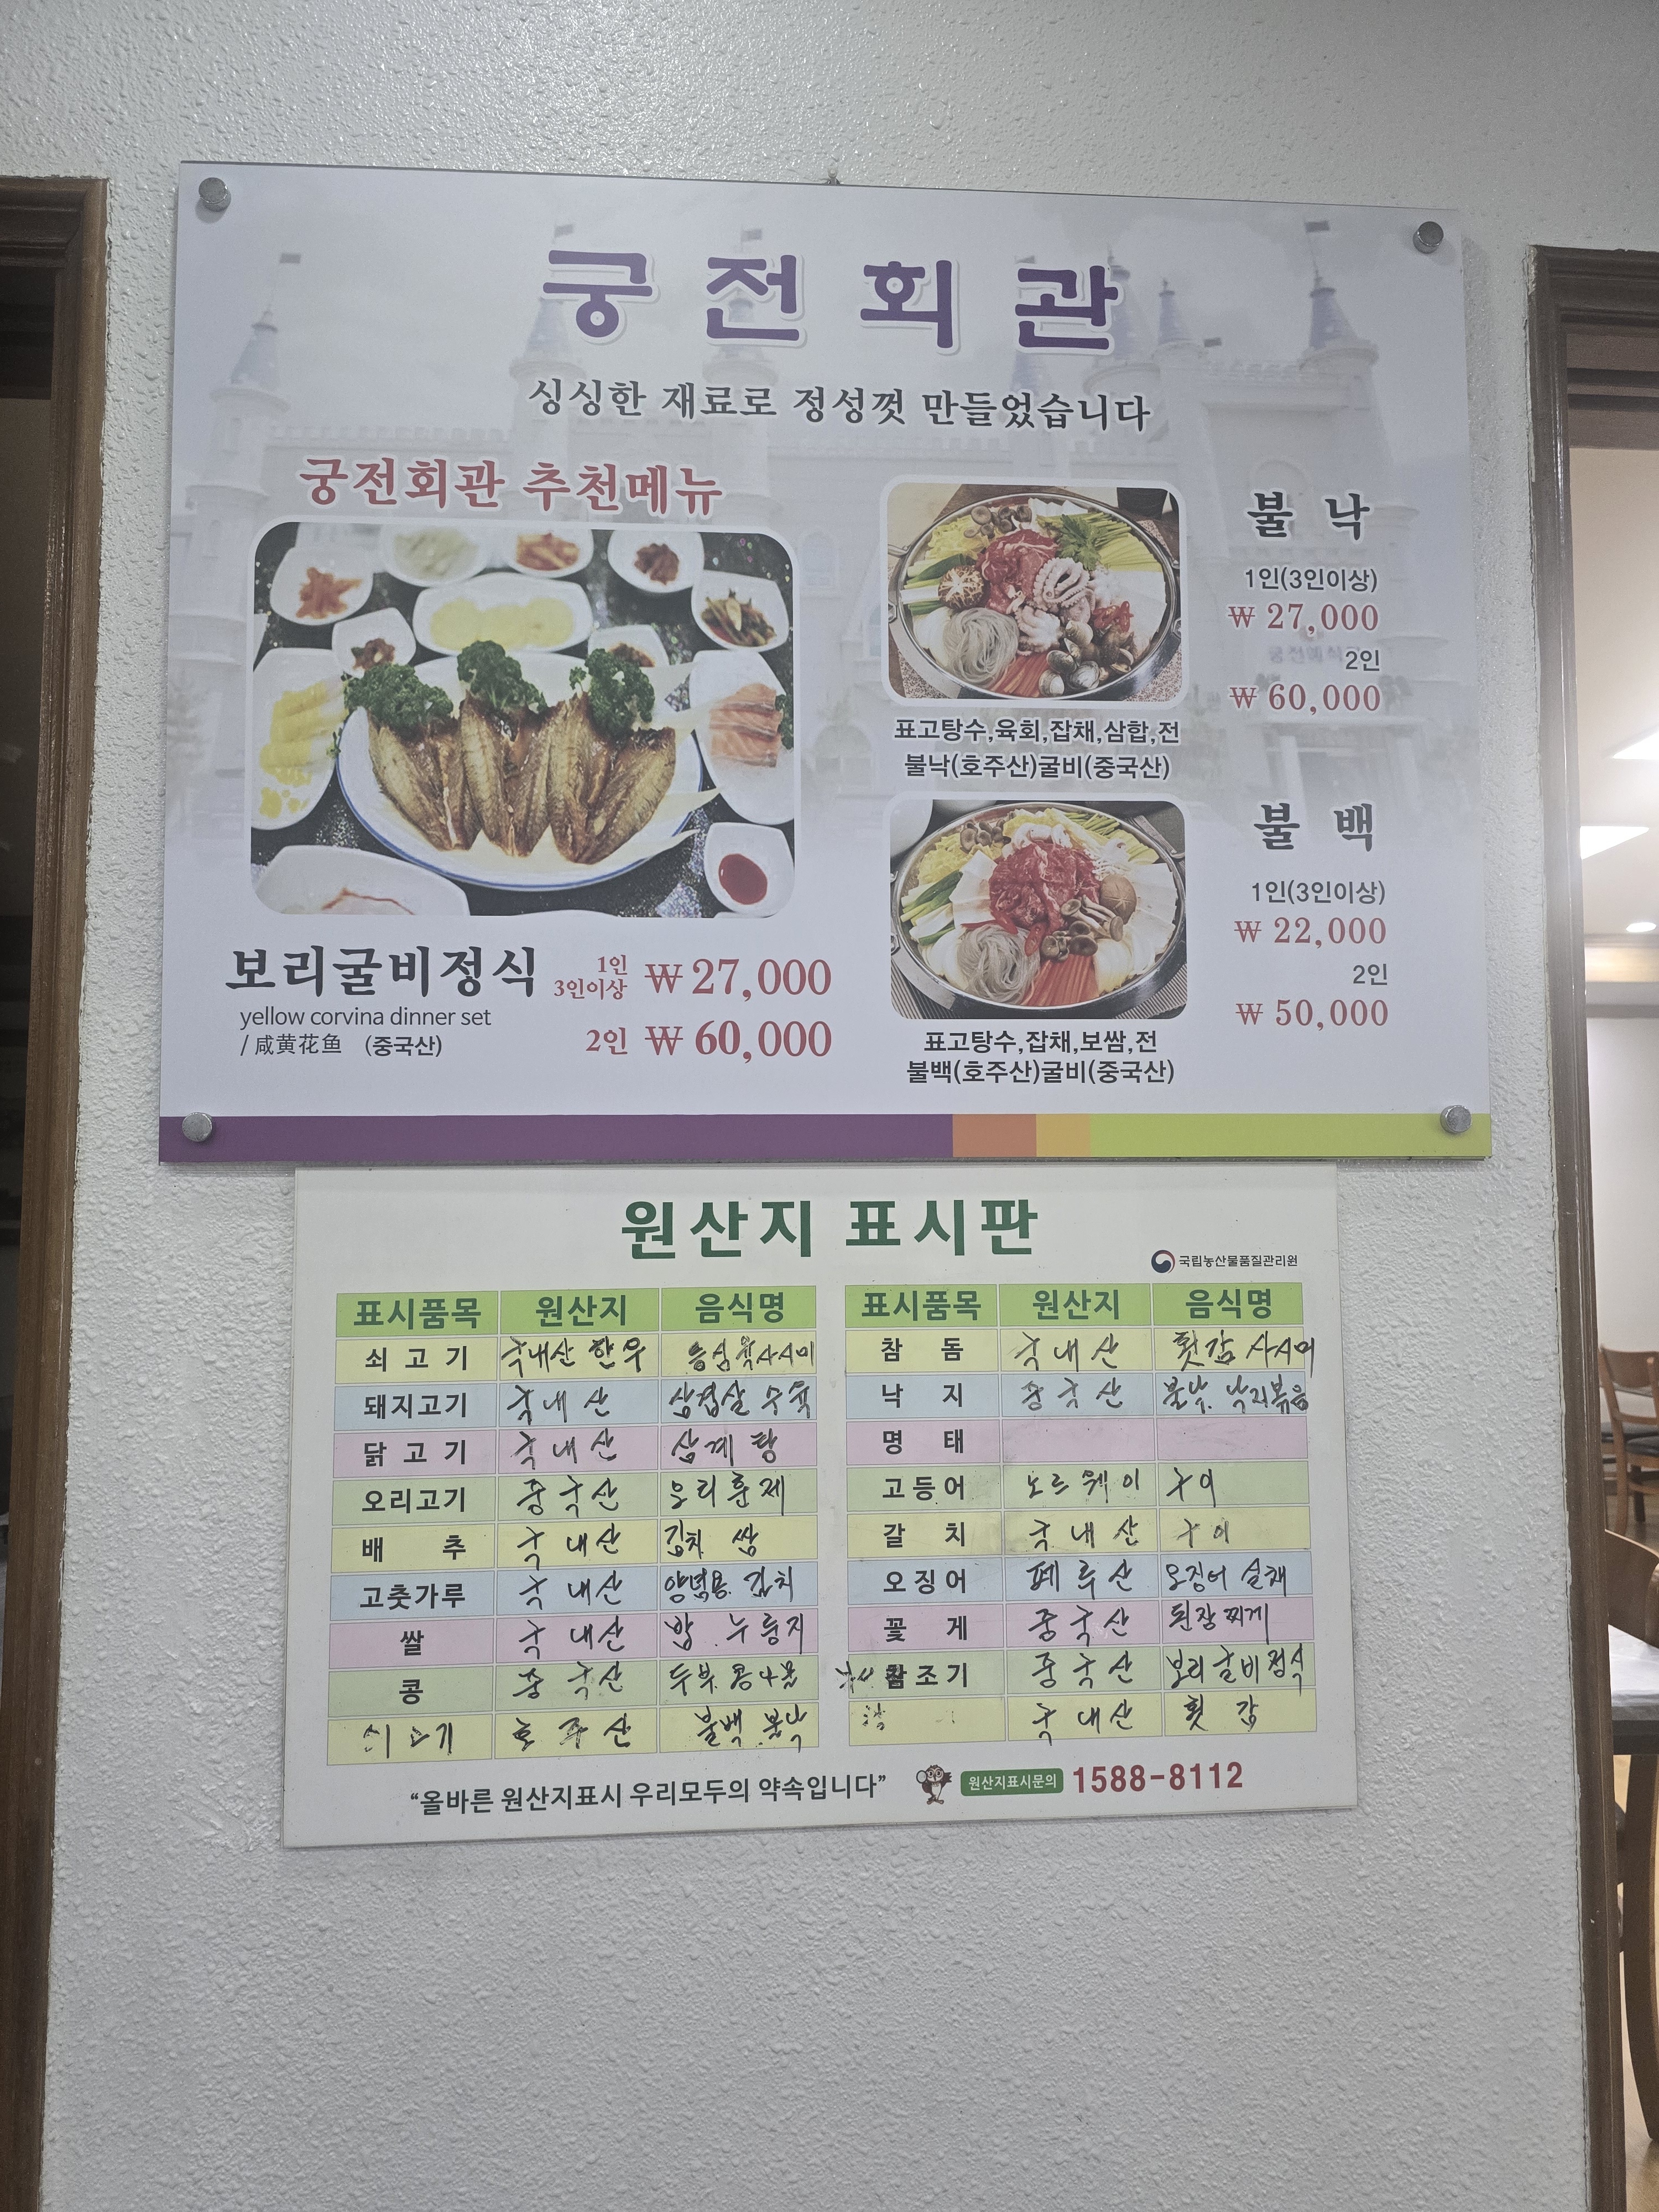 궁전회관
싱싱한 재료로 정성껏 만들었습니다
궁전회관 추천메뉴
보리굴비정식
1인
3인이상
₩27,000
yellow corvina dinner set
/ 咸黄花鱼 (중국산)
2인 ₩60,000
불낙
1인(3인이상)
₩ 27,000
2인
₩ 60,000
표고탕수,육회,잡채,삼합,전
불낙(호주산)굴비(중국산)
불백
1인(3인이상)
₩ 22,000
2인
₩ 50,000
표고탕수,잡채,보쌈,전
불백(호주산)굴비(중국산)
원산지 표시판
국립농산물품질관리원
표시품목 원산지 음식명
쇠고기 국내산 한우
돼지고기 국내산 삼겹살 수육
닭고기 국내산 삼계탕
오리고기 중국산 오리훈제
배추 국내산 김치 쌈
고춧가루 국내산 양념용. 김치
쌀 국내산 밥. 누룽지
콩 중국산 두부 콩나물
호주산 불백. 불낙
표시품목 원산지 음식명
참돔 국내산 횟감 사시미
낙지 중국산 불낙. 낙지볶음
명태
고등어 노르웨이 구이
갈치 국내산 구이
오징어 페루산 오징어
꽃게 중국산 된장찌게
참조기 중국산 보리굴비정식
국내산 횟감
“올바른 원산지표시 우리모두의 약속입니다”
원산지표시문의 1588-8112